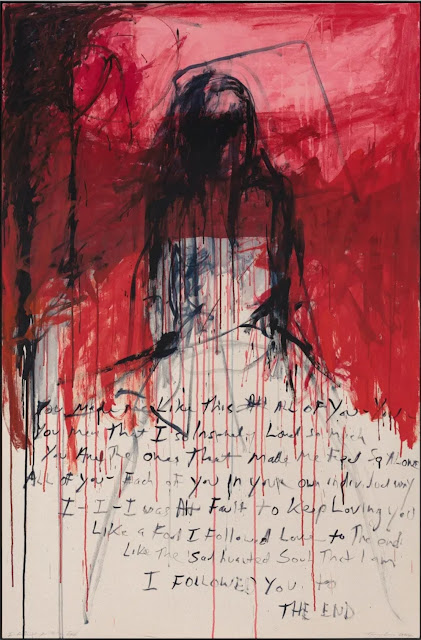 You made me Like this - All of You - You
You men that I so Insanely Loved so much
You Are The ones That Made me Feel So ALONE
All of you - Each of you in your own individual way
I - I - I was At Fault to Keep Loving you
Like a Fool I Followed Love to The end
Like The Sad hearted Soul That I am
I FOLLOWED YOU to
THE END